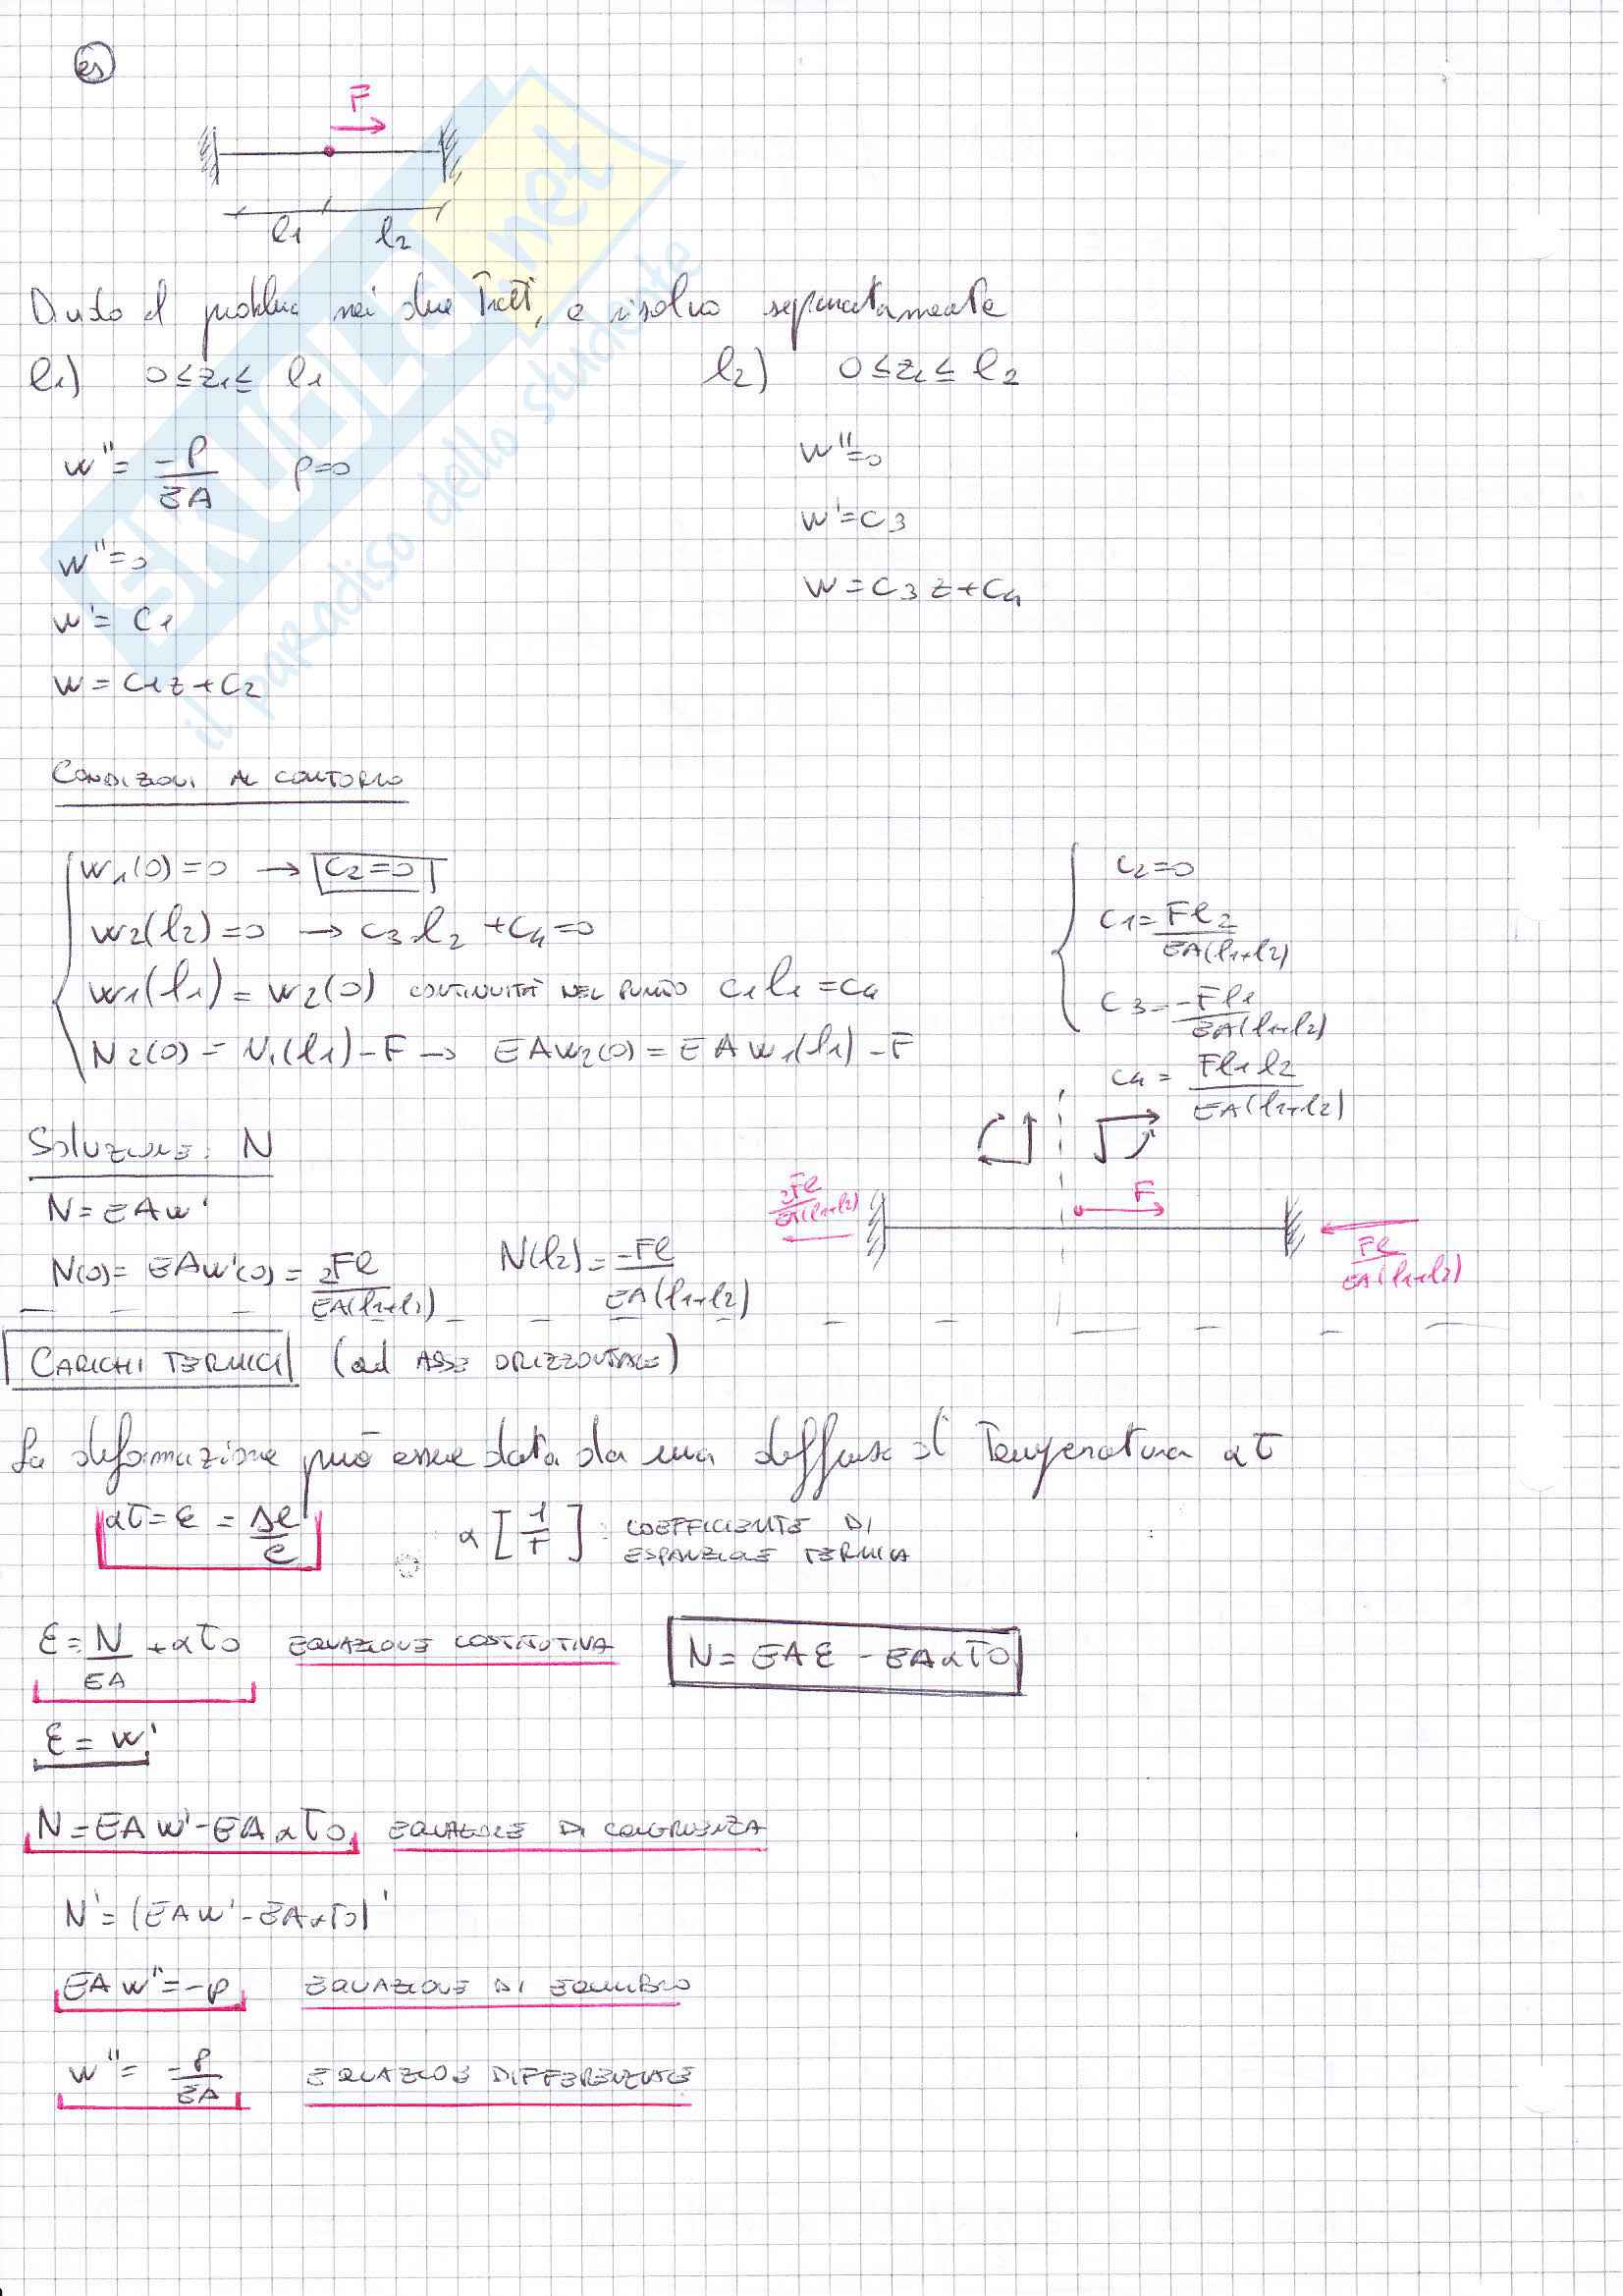 es
F
l1 l2
Divido il problema nei due tratti, e risolvo separatamente
l1) 0≤z1≤ l1
l2) 0≤z2≤ l2
w''= -p/EA p=0
w''=0
w'= C1
w= C1z+C2
w''=0
w'=C3
w=C3z+C4
CONDIZIONI AL CONTORNO
w1(0)=0 → C2=0
w2(l2)=0 → C3l2+C4=0
w1(l1)=w2(0) CONTINUITÀ NEL PUNTO C1l1=C4
N2(0)=N1(l1)-F → EAw2(0)=EAw1(l1)-F
C2=0
C1=Fl2/EA(l1+l2)
C3=-Fl1/EA(l1+l2)
C4=Fl1l2/EA(l1+l2)
SOLUZIONE: N
N=EAw'
N(0)=EAw'(0)=2Fl/EA(l1+l2) N(l2)=-Fl/EA(l1+l2)
2Fl/EA(l1+l2) F Fl/EA(l1+l2)
CARICHI TERMICI (ad ASSE ORIZZONTALE)
La deformazione può essere data da una di Temperatura αT
αT=ε=Δl/l α[1/T]: COEFFICIENTE DI
ESPANZIONE TERMICA
ε=N/EA+αT0 EQUAZIONE COSTITUTIVA N=EAε-EAαT0
ε=w'
N=EAw'-EAαT0 EQUAZIONE DI CONGRUENZA
N'=(EAw'-EAαT0)'
EAw''=-p EQUAZIONE DI EQUILIBRIO
w''=-p/EA EQUAZIONE DIFFERENZIALE
SKUOLA.net
il paradiso dello studente